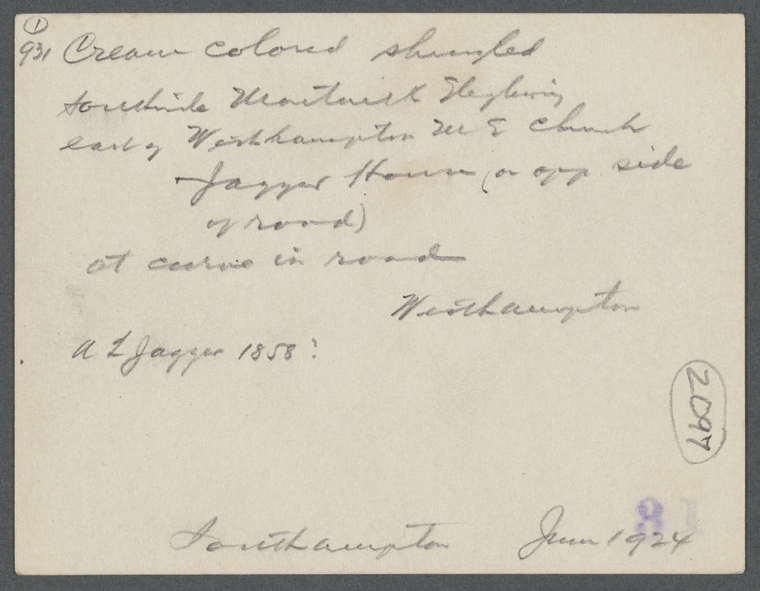 1
931 Cream colored shingled
southside Montauk Highway
east of Westhampton M E Church
Jagger House (on opp side
of road)
at curve in road
Westhampton
A L Jagger 1858?
2097
31
Southampton June 1924